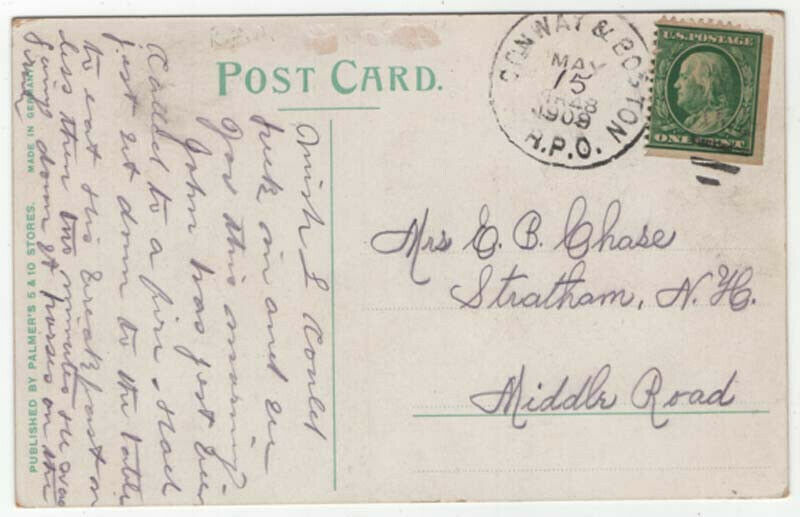 POST CARD.
CONWAY & BOSTON
MAY
15
1909
R.P.O.
U.S. POSTAGE
ONE
Mrs E. B. Chase
Stratham, N. H.
Middle Road
Wish I could
in and
you this morning
John has just been
called to a fire
just sit down to the table
to eat his breakfast
less then two minutes He was
going down st horses on the
PUBLISHED BY PALMER'S 5 & 10 STORES. MADE IN GERMANY